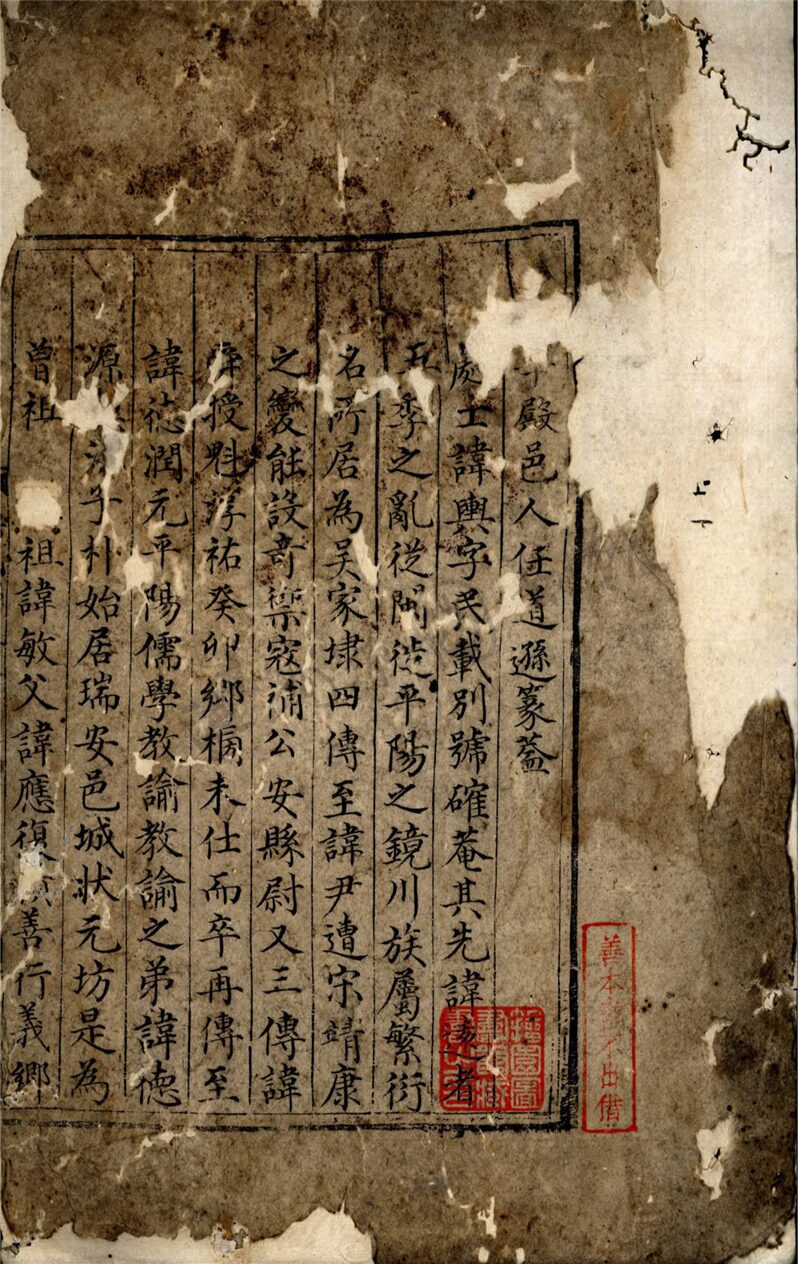 殿邑人任道遜篆蓋
處士諱輿字民載別號確菴其先諱逺者
五季之亂從閩徙平陽之鏡川族屬繁衍
名所居為吴家埭四傳至諱尹遭宋靖康
之變能設竒禦寇補公安縣尉又三傳諱
舜授魁淳祐癸卯鄉榜未仕而卒再傳至
諱徳潤元平陽儒學教諭教諭之弟諱徳
源子朴始居瑞安邑城狀元坊是為
曽祖祖諱敏父諱應復善行義鄉
善本不出借